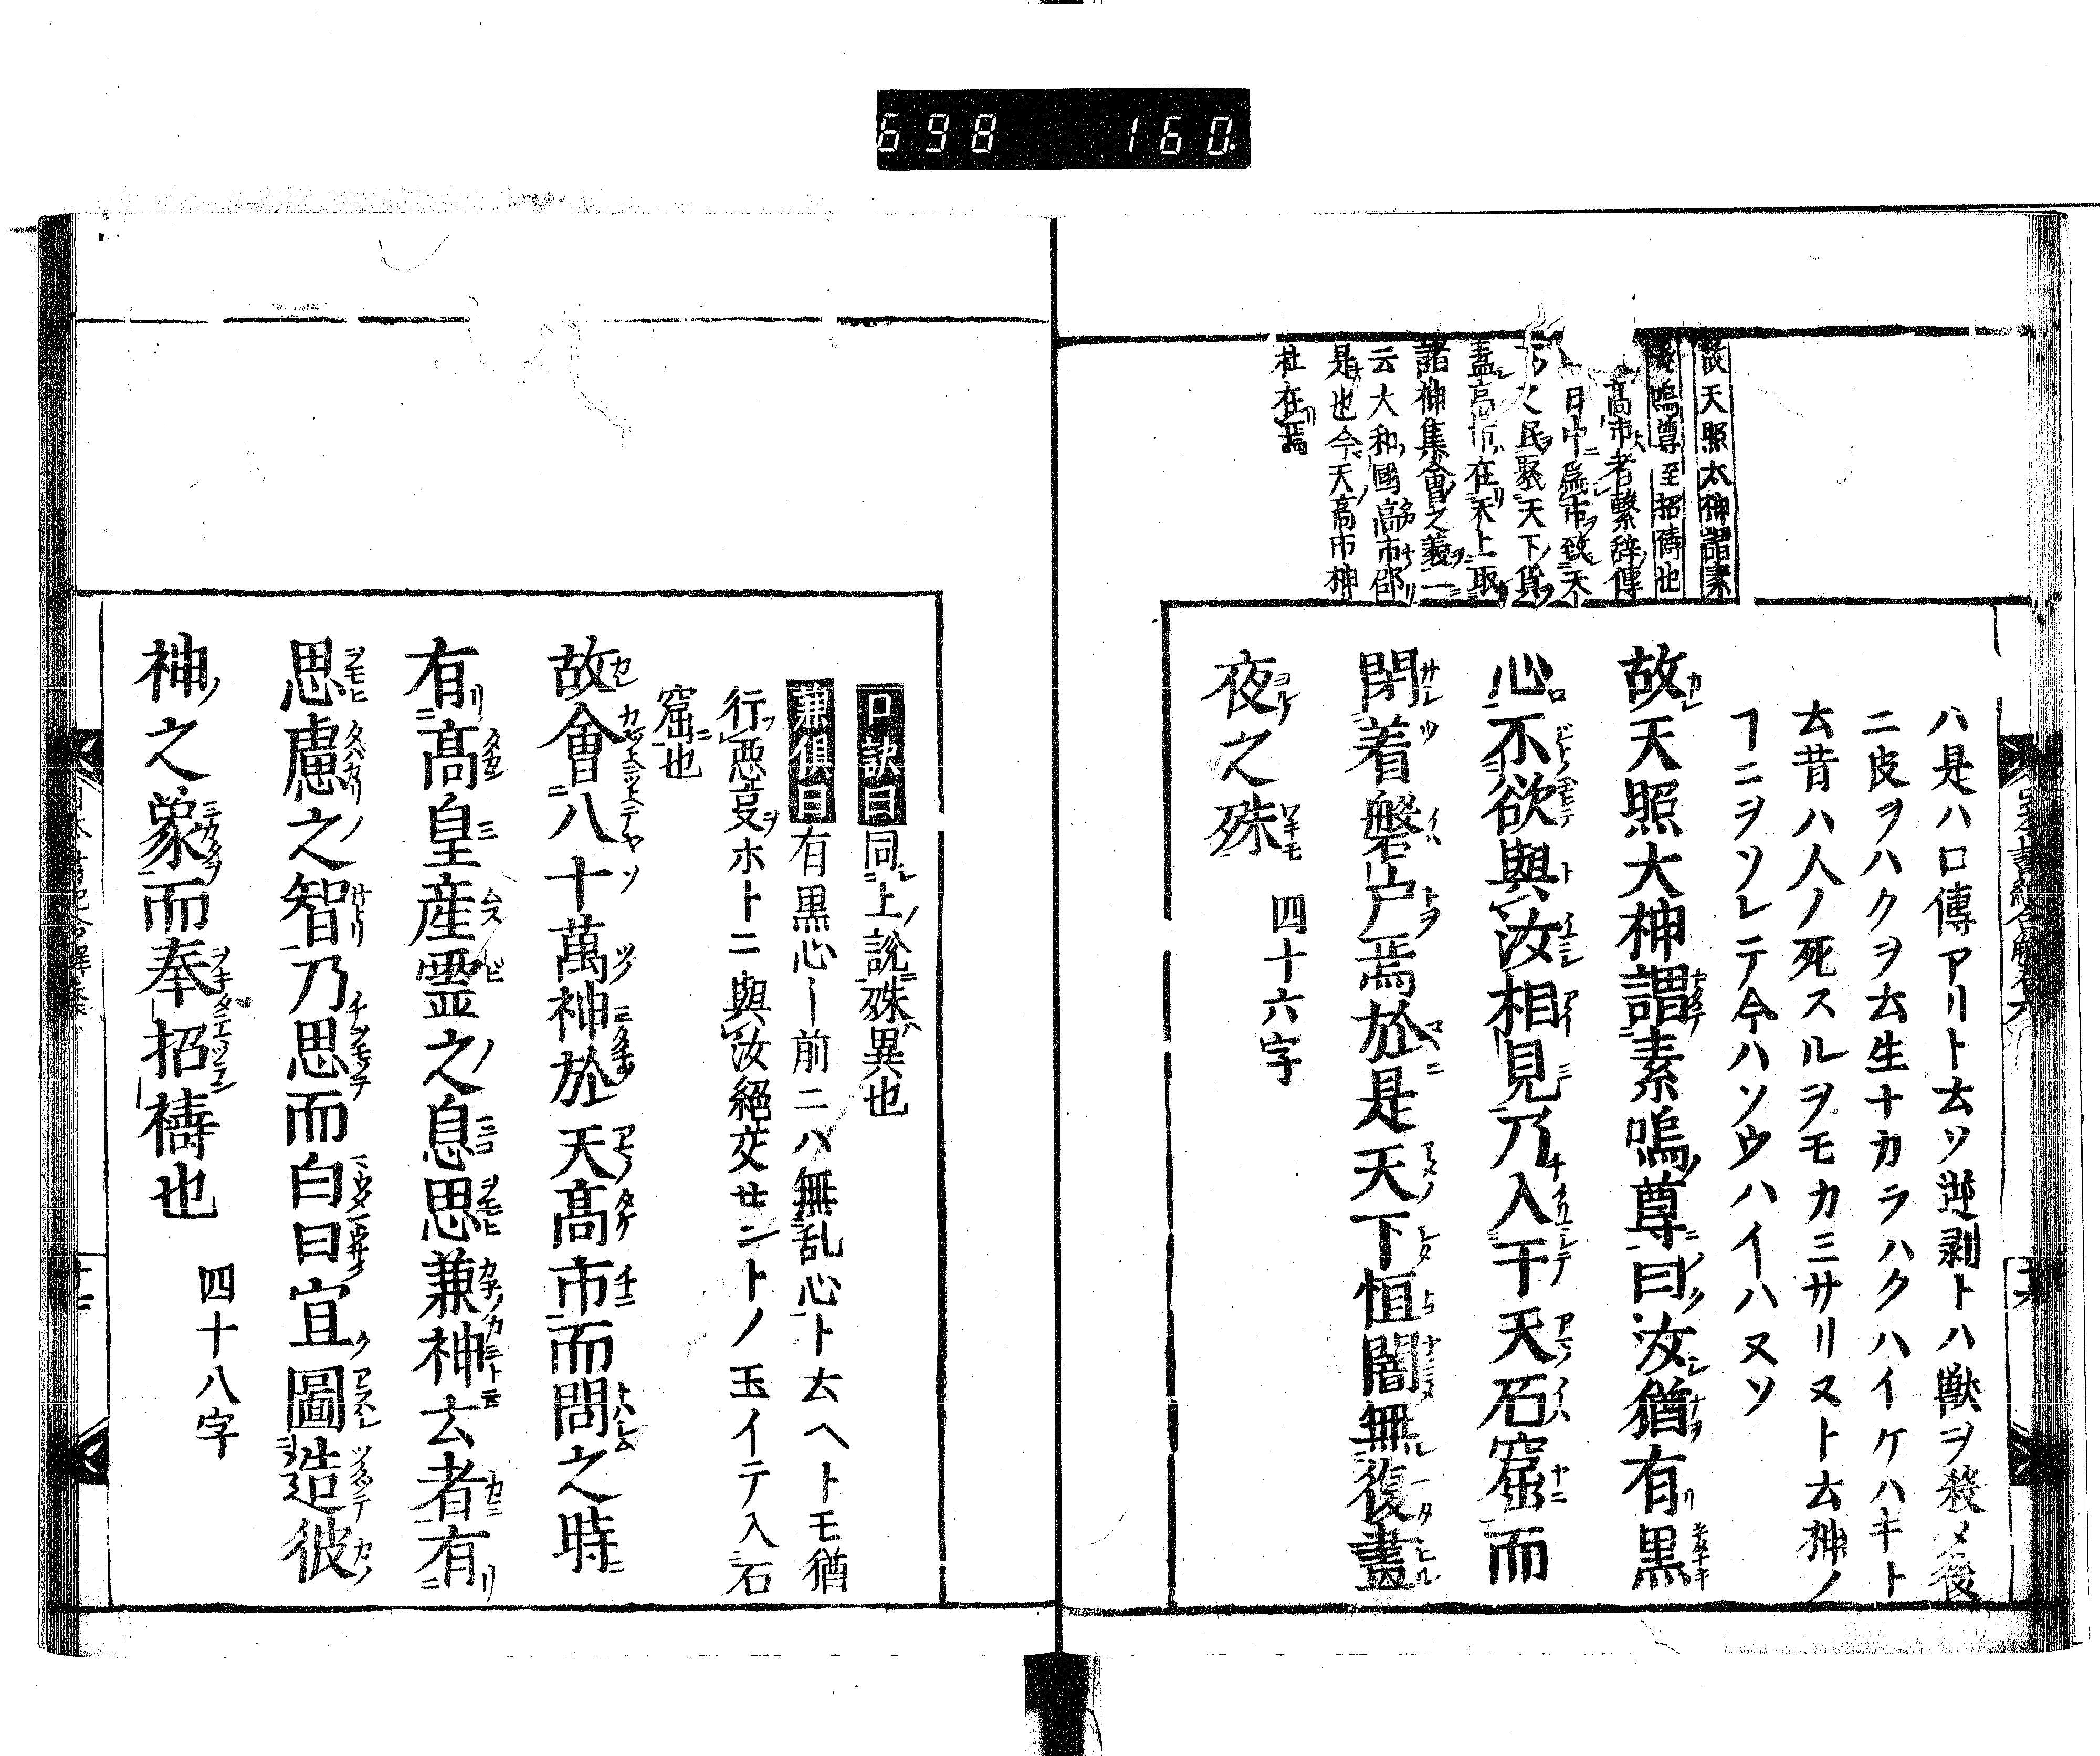 698 160.
故天照太神謂素
嗚尊至招禱也
高市者繫辞傳
日中為市致天
之民聚天下貨
蓋高市在天上取
諸神集會之義一
云大和國高市郡
是也今天高市神
社在焉
ハ是ハ口傳アリト云ソ逆剥トハ獣ヲ殺メ後
ニ皮ヲハクヲ云生ナカラハクハイケハキト
云昔ハ人ノ死スルヲモカミサリヌト云神ノ
ヿニヲソレテ今ハソウハイハヌソ
故天照大神謂素嗚尊曰汝猶有黒
心不欲與汝相見乃入于天石窟而
閉着磐戸焉於是天下恒闇無復晝
夜之殊 四十六字
口訣曰同上說殊異也
兼俱曰有黒心ー前ニハ無乱心ト云ヘトモ猶
行惡叓ホトニ與汝絕交せントノ玉イテ入石
窟也
故會八十萬神於天高市而問之時
有高皇産霊之息思兼神云者有
思慮之智乃思而白曰宜圖造彼
神之象而奉招禱也 四十八字